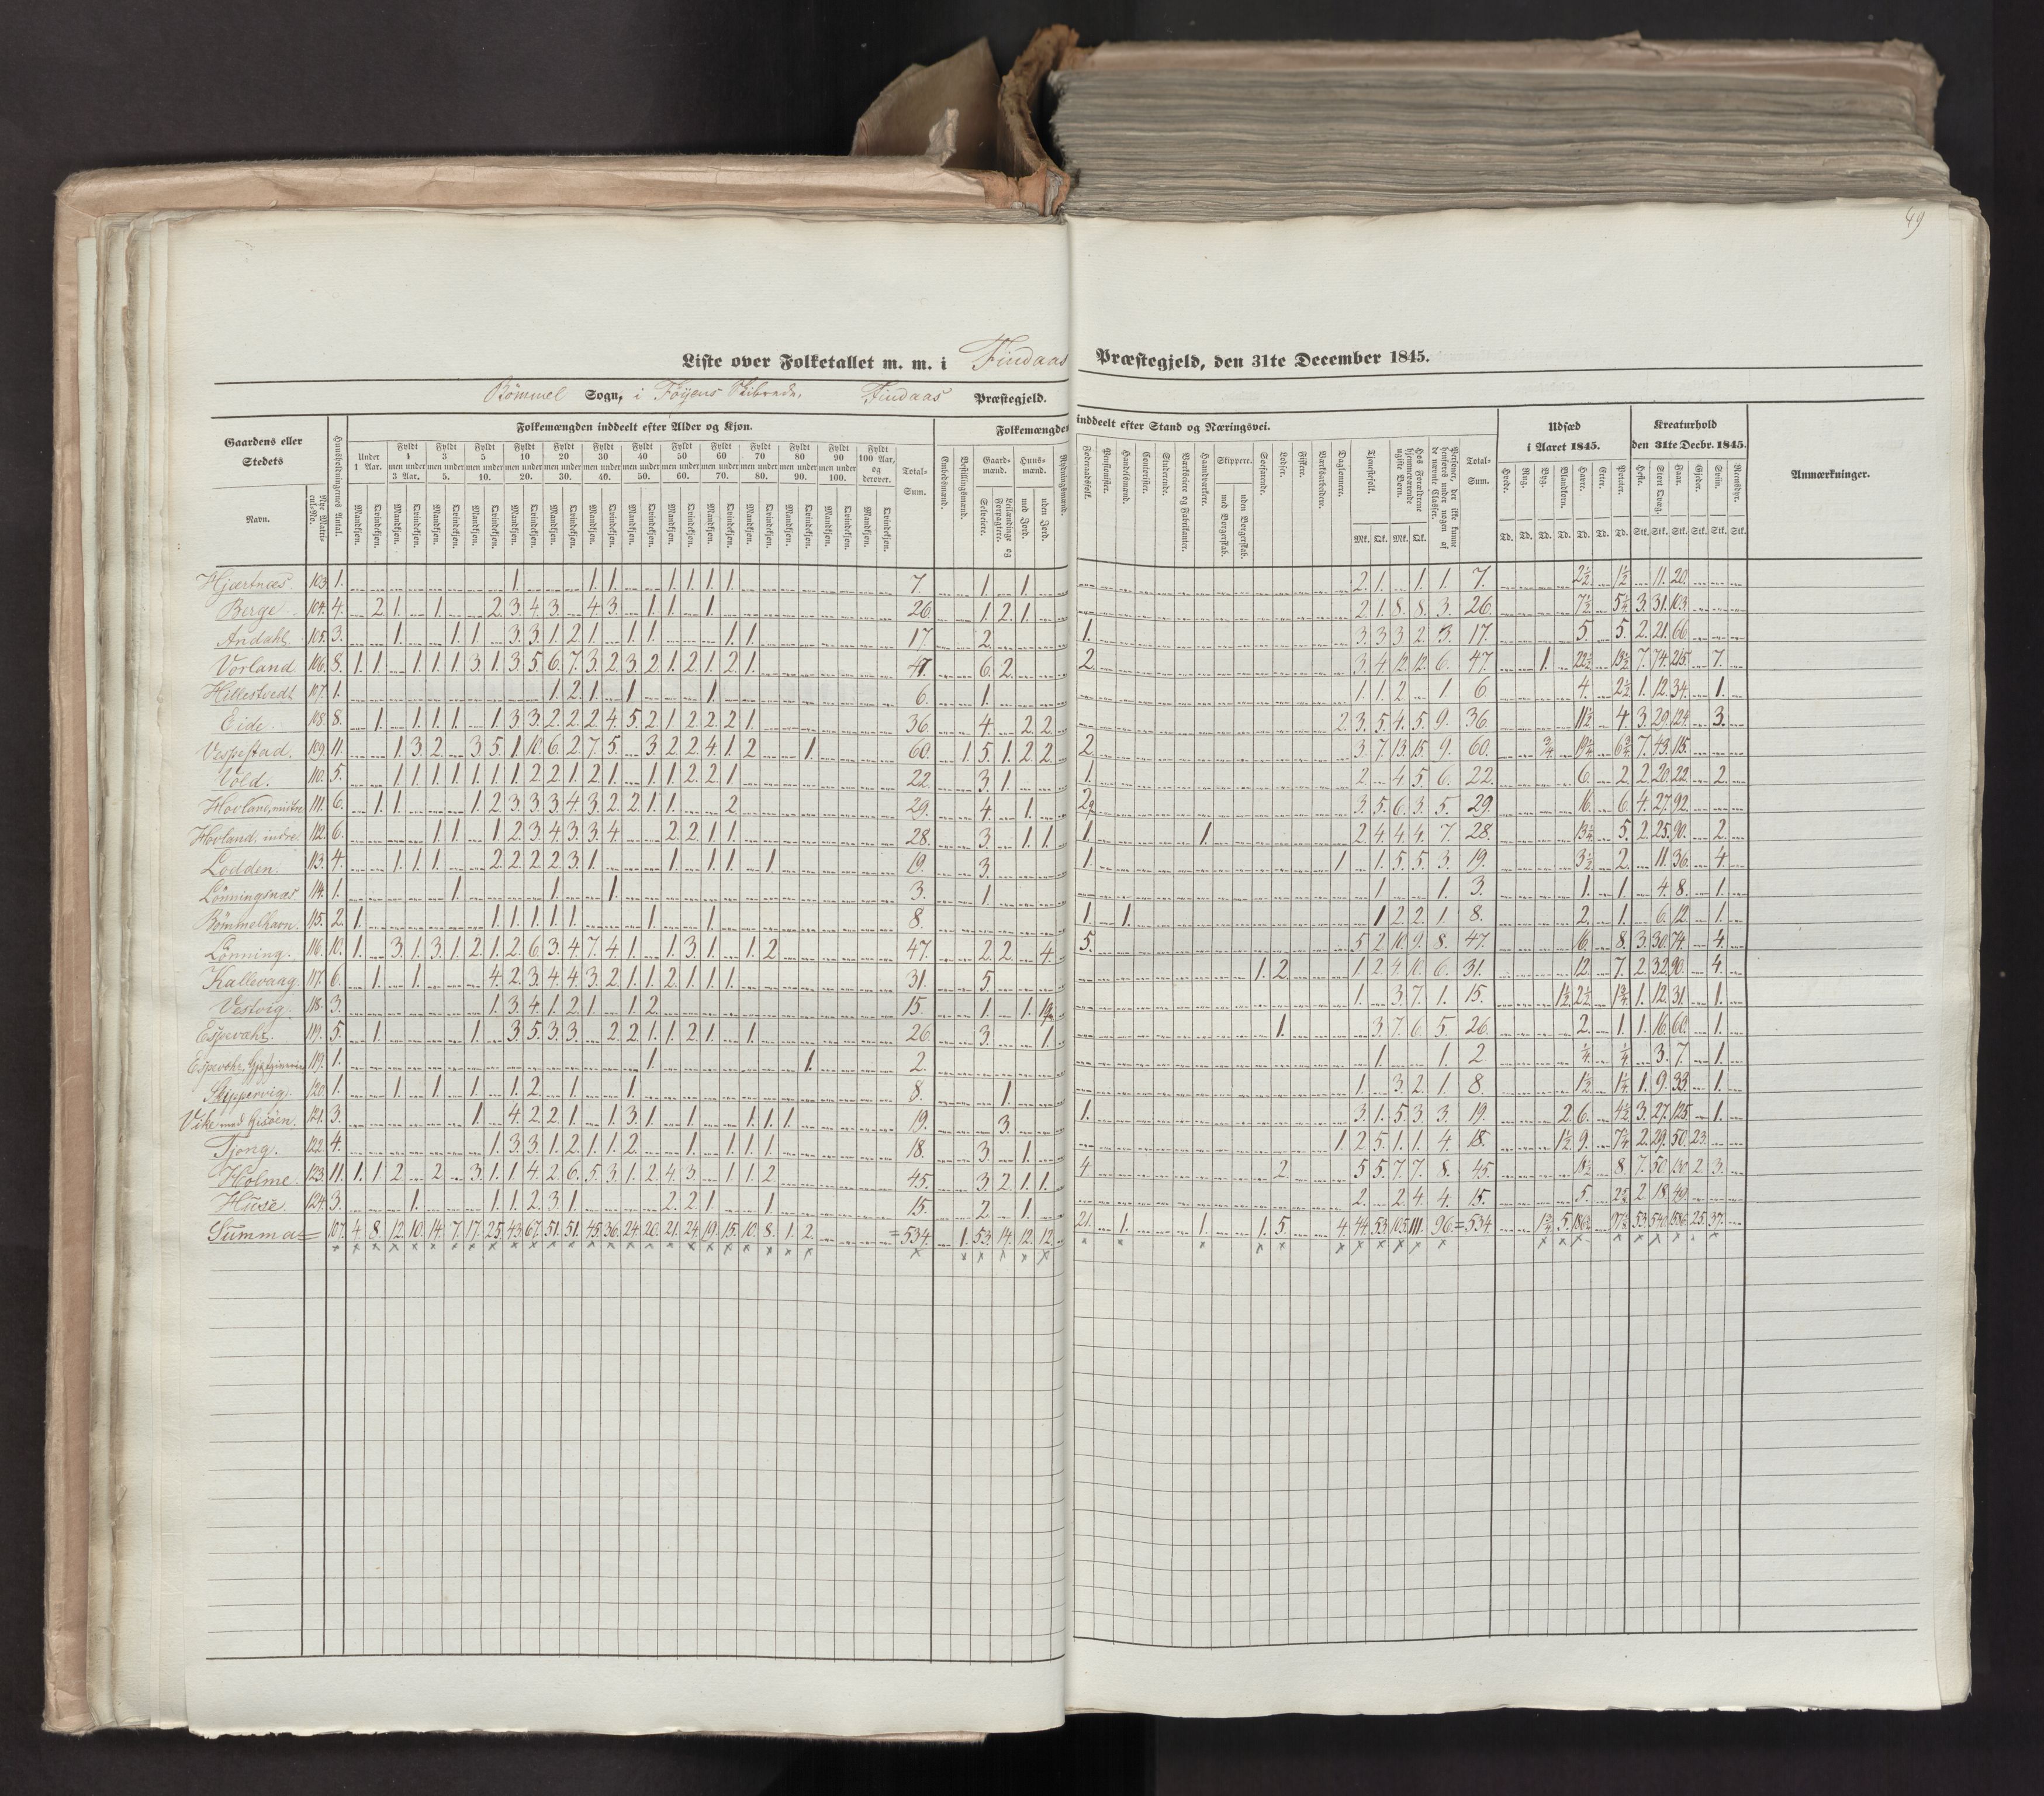 49
Liste over Folketallet m. m. i Findaas Præstegjeld, den 31te December 1845.
Bömmel Sogn, i Föyens Skibrede, Findaas Præstegjeld.
Gaardens eller Stedets Navn.
Nye Matricul-No.
Huusholdningernes Antal.
Folkemængden inddeelt efter Alder og Kjøn.
Under 1 Aar.
Fyldt 1 men under 3 Aar.
Fyldt 3 men under 5.
Fyldt 5 men under 10.
Fyldt 10 men under 20.
Fyldt 20 men under 30.
Fyldt 30 men under 40.
Fyldt 40 men under 50.
Fyldt 50 men under 60.
Fyldt 60 men under 70.
Fyldt 70 men under 80.
Fyldt 80 men under 90.
Fyldt 90 men under 100.
Fyldt 100 Aar, og derover.
Mandkjøn. Qvindekjøn.
Total-Sum.
Folkemængden inddeelt efter Stand og Næringsvei.
Embedsmænd. Bestillingsmænd. Gaardmænd. Selveiere. Leilændinge og Forpagtere. Huusmænd. med Jord. uden Jord. Rydningsmænd.
Føderaadsfolk. Pensionister. Handelsmænd. Contorister. Studerende. Værkseiere og Fabrikanter. Haandværkere. Skippere. med Borgerskab. uden Borgerskab. Søefarende. Lodser. Fiskere. Værksarbeidere. Daglønnere. Tjenestefolk. Hos Forældrene hjemmeværende ugifte Børn. Personer, der ikke kunne henføres under nogen af de nævnte Classer. Total-Sum.
Mk. Qk. Mk. Qk.
Udsæd i Aaret 1845.
Hvede. Rug. Byg. Blandkorn. Havre. Erter. Poteter.
Td. Td. Td. Td. Td. Td. Td.
Kreaturhold den 31te Decbr. 1845.
Heste. Stort Qvæg. Faar. Gjeder. Sviin. Rensdyr.
Stk. Stk. Stk. Stk. Stk. Stk.
Anmærkninger.
Hjærtnæs 103. 1. 1. 1. 1. 1. 1. 1. 1. 7. 1. 1. 2. 1. 1. 1. 7. 2½. 1½. 11. 20.
Berge 104. 4. 2. 1. 1. 2. 3. 4. 3. 4. 3. 1. 1. 1. 26. 1. 2. 1. 2. 1. 8. 8. 3. 26. 7½. 5¼. 3. 31. 103.
Andahl 105. 3. 1. 1. 1. 3. 3. 1. 2. 1. 1. 1. 1. 1. 17. 2. 1. 3. 3. 3. 2. 3. 17. 5. 5. 2. 21. 66.
Vorland 106. 8. 1. 1. 1. 1. 1. 3. 1. 3. 5. 6. 7. 3. 2. 3. 2. 1. 2. 1. 2. 1. 47. 6. 2. 2. 3. 4. 12. 12. 6. 47. 1. 22½. 13½. 7. 74. 215. 7.
Hillestvedt 107. 1. 1. 2. 1. 1. 1. 6. 1. 1. 1. 2. 1. 6. 4. 2½. 1. 12. 34. 1.
Eide 108. 8. 1. 1. 1. 1. 1. 3. 3. 2. 2. 2. 4. 5. 2. 1. 2. 2. 2. 1. 36. 4. 2. 2. 2. 3. 5. 4. 5. 9. 36. 11½. 4. 3. 29. 124. 3.
Vespestad. 109. 11. 1. 3. 2. 3. 5. 1. 10. 6. 2. 7. 5. 3. 2. 2. 4. 1. 2. 1. 60. 1. 5. 1. 2. 2. 2. 3. 7. 13. 15. 9. 60. ¾. 19¼. 6¾. 7. 43. 115.
Vold. 110. 5. 1. 1. 1. 1. 1. 1. 1. 2. 2. 1. 2. 1. 1. 1. 2. 2. 1. 22. 3. 1. 1. 2. 4. 5. 6. 22. 6. 2. 2. 20. 22. 2.
Hovland, midtre 111. 6. 1. 1. 1. 2. 3. 3. 3. 4. 3. 2. 2. 1. 1. 2. 29. 4. 1. 2. 3. 5. 6. 3. 5. 29. 16. 6. 4. 27. 92.
Hovland, indre 112. 6. 1. 1. 1. 2. 3. 4. 3. 3. 4. 2. 2. 1. 1. 28. 3. 1. 1. 1. 1. 2. 4. 4. 4. 7. 28. 13¼. 5. 2. 25. 90. 2.
Lodden. 113. 4. 1. 1. 1. 2. 2. 2. 2. 3. 1. 1. 1. 1. 1. 19. 3. 1. 1. 1. 5. 5. 3. 19. 3½. 2. 11. 36. 4.
Lönningsnæs 114. 1. 1. 1. 1. 3. 1. 1. 1. 3. 1. 1. 4. 8. 1.
Bömmelhavn. 115. 2. 1. 1. 1. 1. 1. 1. 1. 1. 8. 1. 1. 1. 2. 2. 1. 8. 2. 1. 6. 12. 1.
Lönning. 116. 10. 1. 3. 1. 3. 1. 2. 1. 2. 6. 3. 4. 7. 4. 1. 1. 3. 1. 1. 2. 47. 2. 2. 4. 5. 5. 2. 10. 9. 8. 47. 16. 8. 3. 30. 74. 4.
Kallevaag. 117. 6. 1. 1. 4. 2. 3. 4. 4. 3. 2. 1. 1. 2. 1. 1. 1. 31. 5. 1. 2. 1. 2. 4. 10. 6. 31. 12. 7. 2. 32. 90. 4.
Vestvig. 118. 3. 1. 3. 4. 1. 2. 1. 1. 2. 15. 1. 1. 1. 3. 7. 1. 15. 1½. 2½. 1¾. 1. 12. 31. 1.
Espevæhr. 119. 5. 1. 1. 3. 5. 3. 3. 2. 2. 1. 1. 2. 1. 1. 26. 3. 1. 1. 3. 7. 6. 5. 26. 2. 1. 1. 16. 60. 1.
Espevæhr, 119. 1. 1. 1. 2. 1. 1. 2. ¼. ¼. 3. 7. 1.
Skippervig. 120. 1. 1. 1. 1. 1. 2. 1. 1. 8. 1. 1. 3. 2. 1. 8. 1½. 1¼. 1. 9. 33. 1.
Vike med Gisöen. 121. 3. 1. 4. 2. 2. 1. 1. 3. 1. 1. 1. 1. 1. 19. 3. 1. 3. 1. 5. 3. 3. 19 2. 6. 4½. 3. 27. 125. 1.
Tjong. 122. 4. 1. 3. 3. 1. 2. 1. 1. 2. 1. 1. 1. 1. 18. 3. 1. 1. 2. 5. 1. 1. 4. 18. 1½. 9. 7¼. 2. 29. 50. 23.
Holme. 123. 11. 1. 1. 2. 2. 3. 1. 1. 4. 2. 6. 5. 3. 1. 2. 4. 3. 1. 1. 2. 45. 3. 2. 1. 1. 4 2. 5. 5. 7. 7. 8. 45. 8. 7. 50. 130. 2. 3.
Huse. 124. 3. 1. 1. 1. 2. 3. 1. 2. 2. 1. 1. 15. 2. 1. 2. 2. 4. 4. 15. 5. 2½. 2. 18. 49.
Summa = 107. 4. 8. 12. 10. 14. 7. 17. 25. 43. 67. 51. 51. 45. 36. 24. 20. 21. 24. 19. 15. 10. 8. 1. 2. = 534. 1. 53. 14. 12. 12. 21. 1. 1. 1. 5. 4. 44. 53. 105. 111. 96 = 534. 1¾. 5. 97½. 53. 540. 1586. 25. 37.